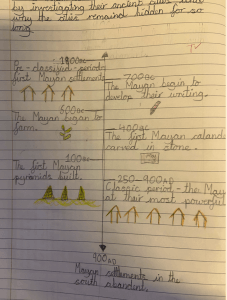 by investigating their ancient cities and
why the cities remained hidden for so
long.
1800BC
Pre-classical-period
first Mayan settlements
700BC
The Mayan begin to
develop their writing.
600BC
The Mayan began to
farm.
400BC
The first Mayan caland
carved in stone.
100BC
The first Mayan
pyramids built.
250-900AD
Classic period-the May
at their most powerful
900AD
Mayan settlements in the
south abandent.